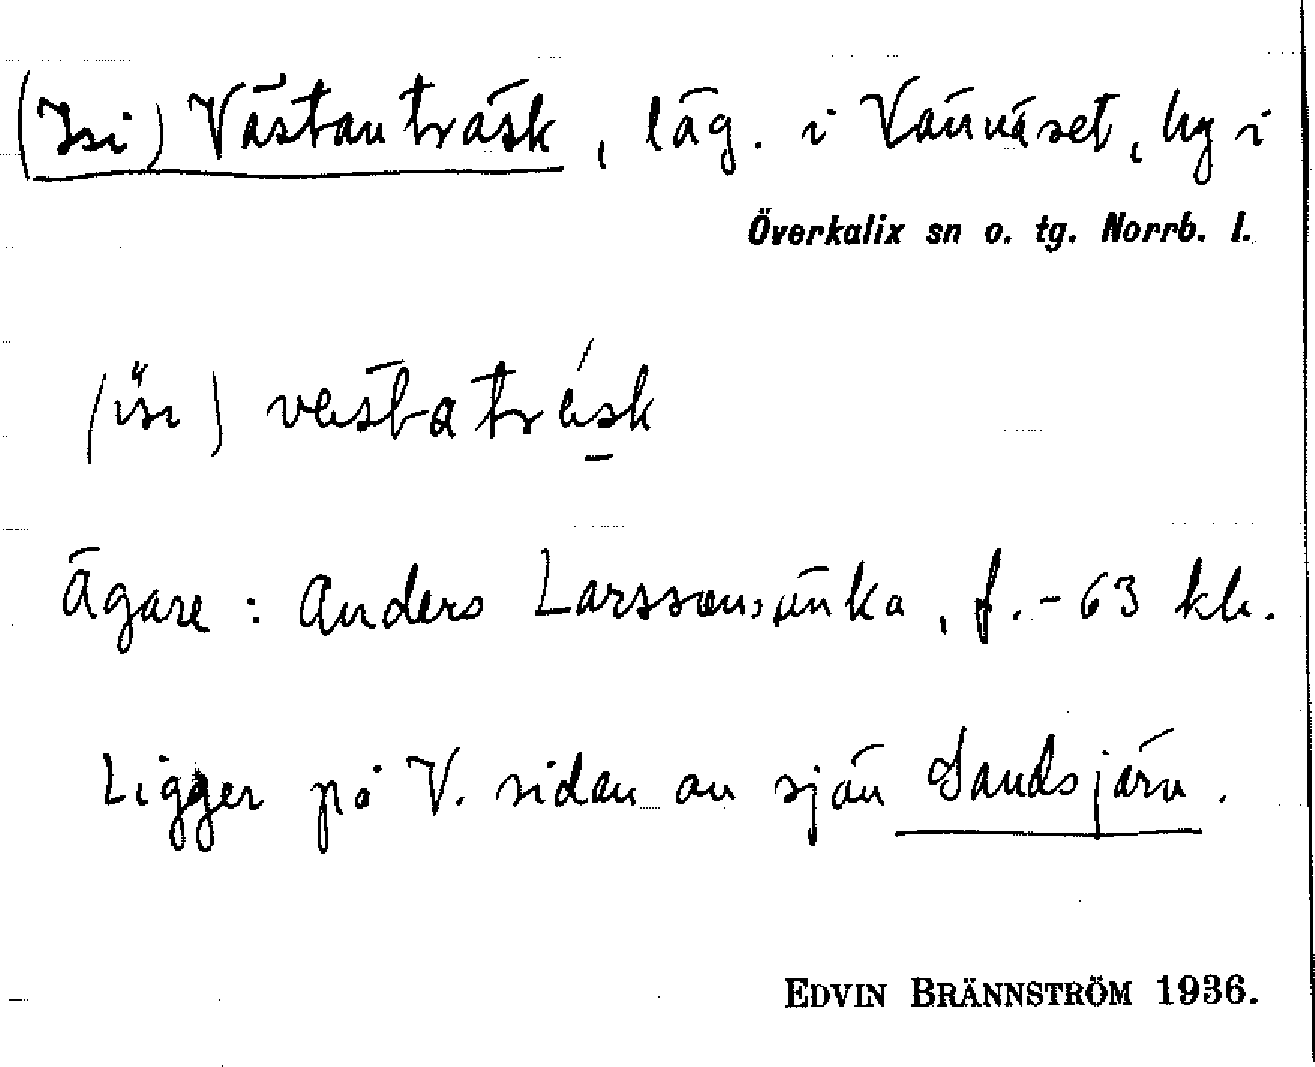 (Isi) Västanträsk, läg. i Vännäset, by i
Överkalix sn o. tg. Norrb. l.
(ïsi) vesta trésk
Ägare: Anders Larsson, änka, f. -63 kh.
Ligger på V. sidan av sjön Sandsjärv.
EDVIN BRÄNNSTRÖM 1936.